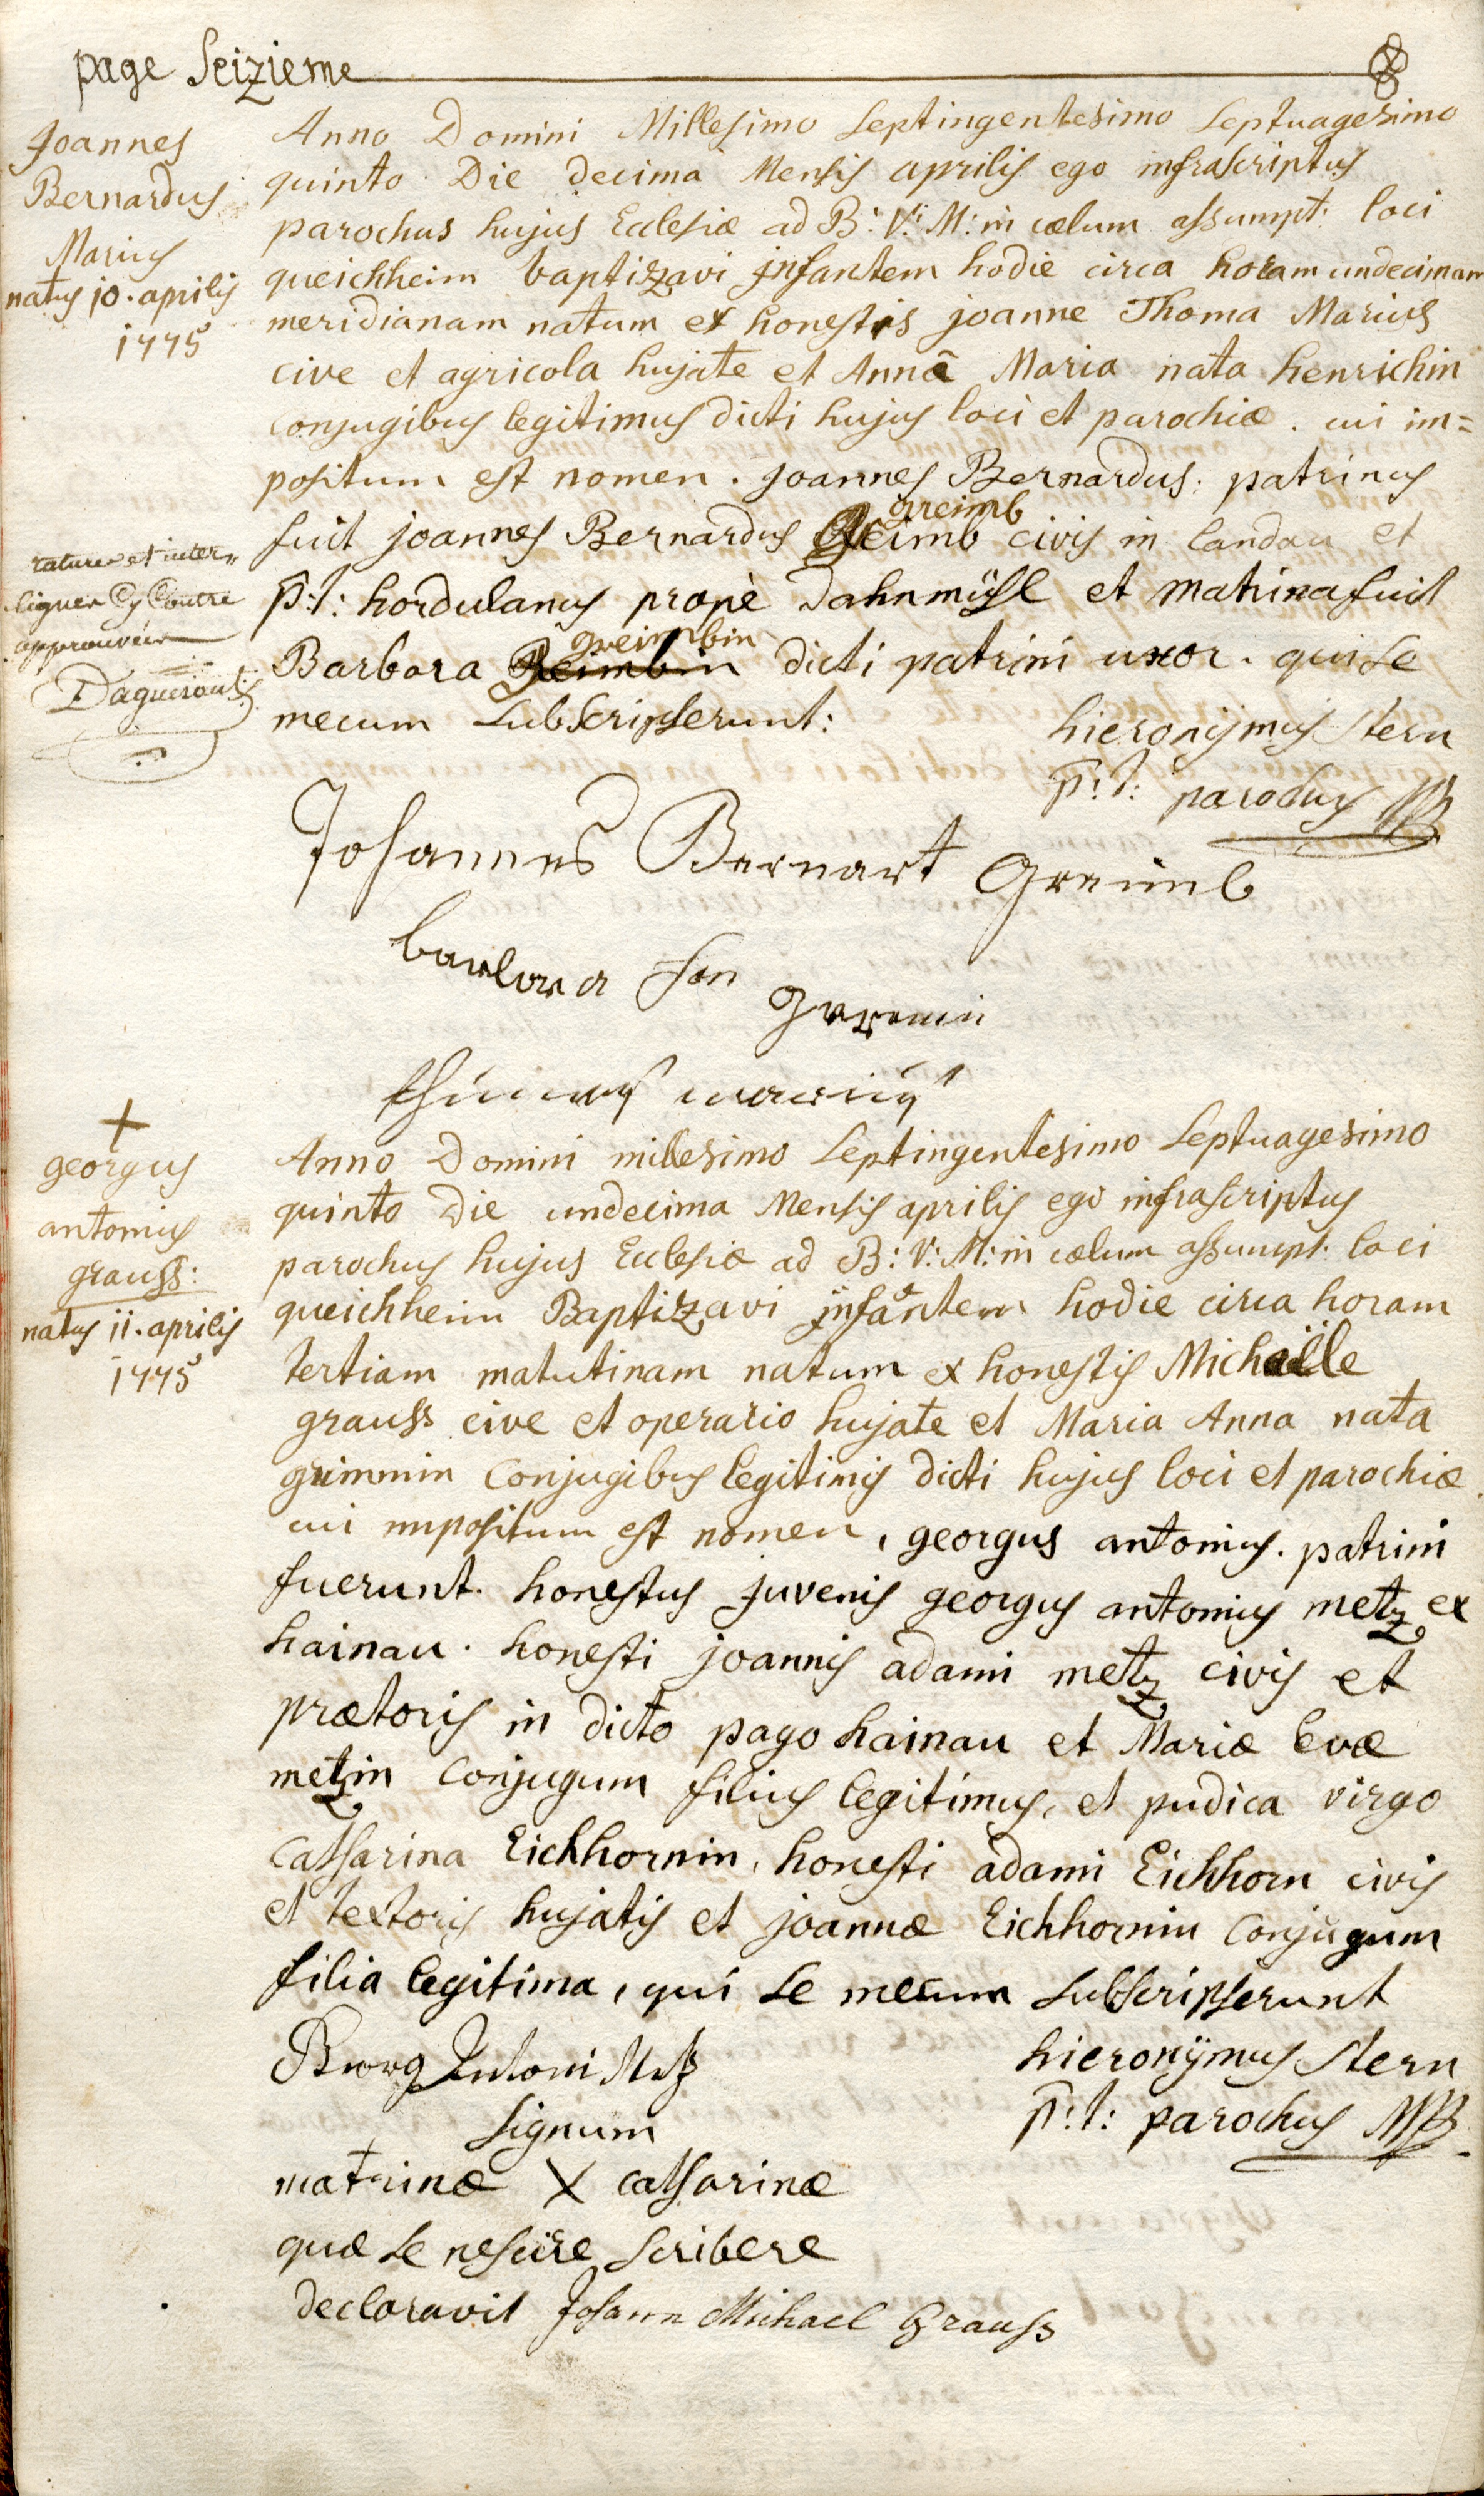 page Seizieme
8
Joannes
Bernardus
Marius
natus 10. aprilis
1775
Anno Domini Millesimo Septingentesimo Septuagesimo
quinto Die decima Mensis aprilis ego infrascriptus
parochus hujus Ecclesiæ ad B: V: M: in cœlum assumpt: loci
queichheim baptizavi infantem hodie circa horam undecimam
meridianam natum ex honestis joanne Thoma Marius
cive et agricola hujate et Annâ Maria nata henrichin
conjugibus legitimus dicti hujus loci et parochiæ. cui im=
positum est nomen. joannes Bernardus: patrinus
greimb
fuit joannes Bernardus Reimb civis in Landau et
p:t: hordulanus propè Dahnmühl et matrina fuit
greimbin
Barbara Reimbin dicti patrini uxor. qui se
mecum subscripserunt:
rature et inter„
ligner Cy Contre
approuvées
Daguerault
hieronÿmus Stern
p:t: parochus MP
Johannes Bernart Greimb
barbara
+
georgus
antonius
grauss:
natus 11. aprilis
1775
Anno Domini millesimo Septingentesimo Septuagesimo
quinto Die undecima Mensis aprilis ego infrascriptus
parochus hujus Ecclesiæ ad B: V: M: in cœlum assumpt: loci
queichheim Baptizavi infantem hodie circa horam
tertiam matutinam natum ex honestis Michaële
grauss cive et operario hujate et Maria Anna nata
grimmin Conjugibus legitimis dicti hujus loci et parochiæ
cui impositum est nomen, georgus antonius. patrini
fuerunt. honestus juvenis georgus antonius metz ex
hainau. honesti joannis adami metz civis et
prætoris in dicto pago hainau et Mariæ Evæ
metzin Conjugum filius legitimus, et pudica virgo
Catharina Eichhornin, honesti adami Eichhorn civis
et textoris hujatis et joannæ Eichhornin Conjugum
filia legitima, qui se mecum subscripserunt
hieronÿmus Stern
p:t: parochus MP
Georg Antoni Metz
Signum
matrinæ X catharinæ
quæ se nescire scribere
declaravit Johann Michael Grauss